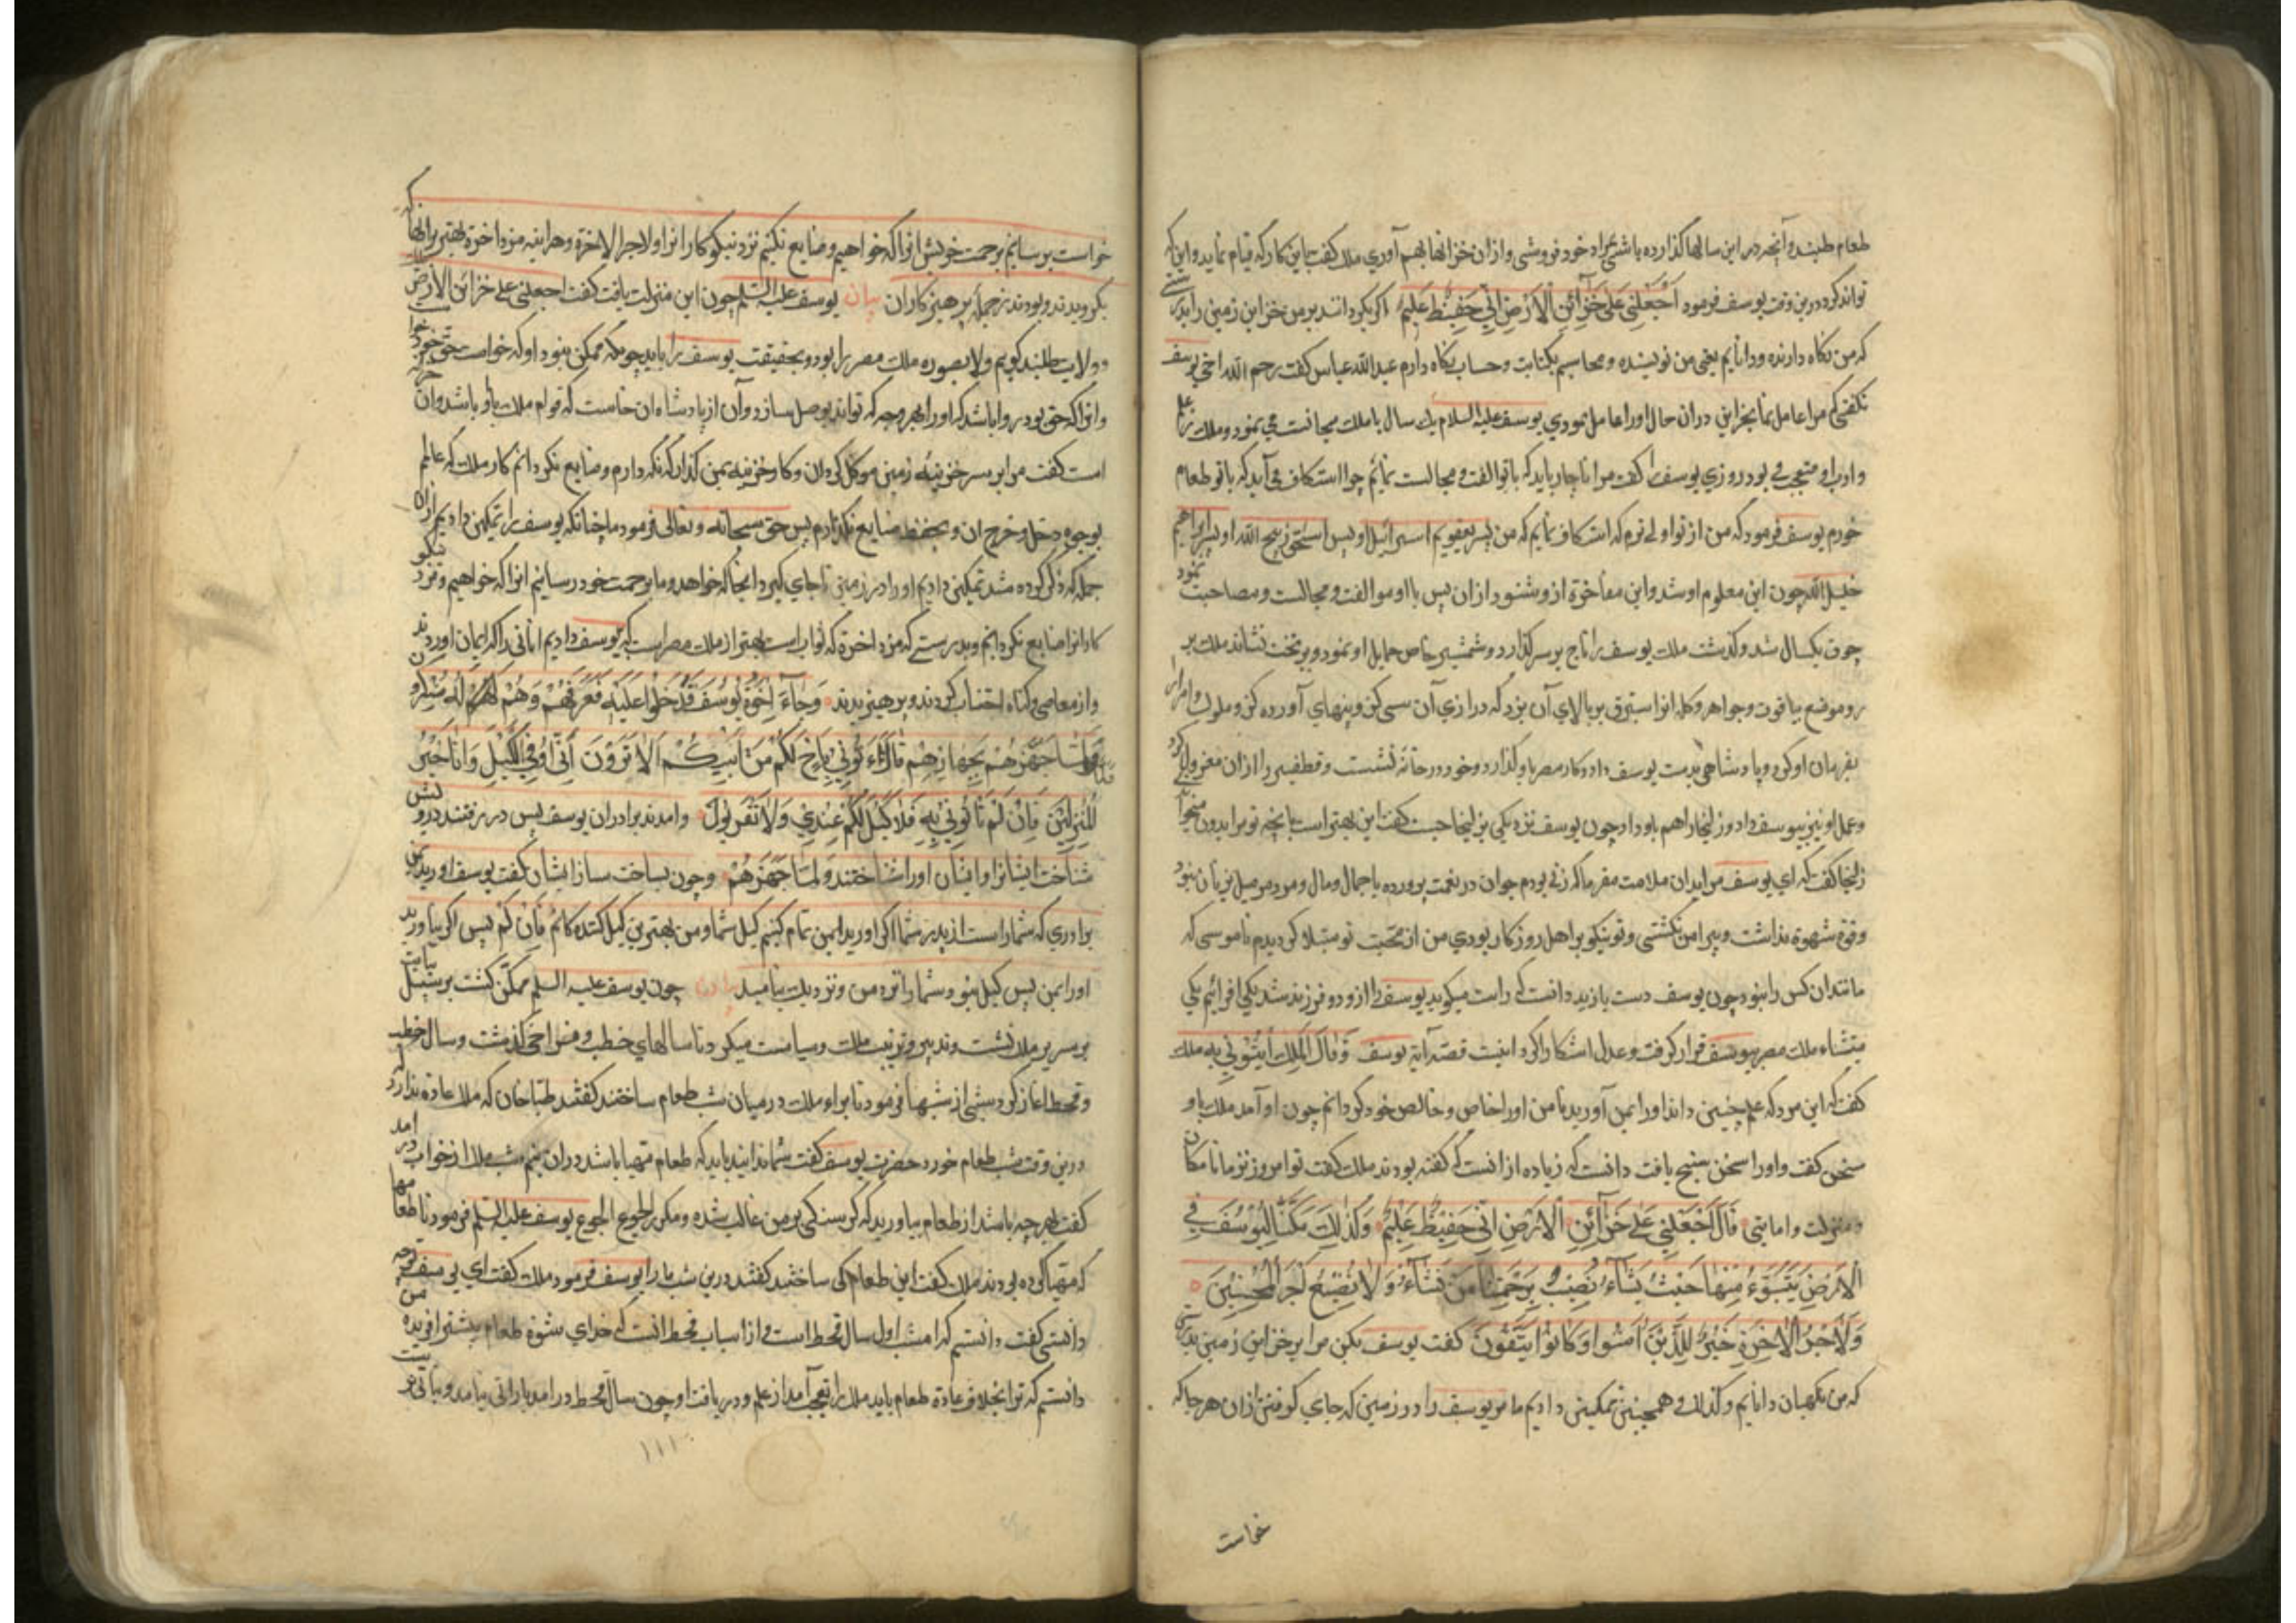 طعام طلبند و آنچه در این سالها گذارده باشی بمراد خود فروشی و ازان خزانها بهم آوری ملک گفت باین کار که قیام نماید و این که
تواند کرد درین وقت یوسف فرمود اجْعَلْنِي عَلَى خَزَآئِنِ الْاَرْضِ اِنِّي حَفِيظٌ عَلِيمٌ اکر بکردانید بر من خزاین زمین را بدرستی
که من نگاه دارنده و دانایم یعنی من نویسنده و محاسبم بکتابت و حساب نگاه دارم عبدالله عباس کفت رحم الله اخی یوسف
نکفتی که مرا عامل نما بخزاین دران حال اورا عامل نمودی یوسف علیه السلام یک سال با ملک مجالست می نمود و ملک
و ادب او متعجب می بود روزی یوسف را کفت مرا ناچار باید که با تو الفت و مجالست نمایم چرا استنکاف می آید که با تو طعام
خورم یوسف فرمود که من از تو اولی ترم که استنکاف نمایم که من پسر یعقوبم اسرائیل او پسر اسحق ذبیح الله او پسر ابراهیم
خلیل الله چون این معلوم او شد و این مفاخرة ازو شنود ازان پس با او موالفت و مجالست و مصاحبت نمود
چون یکسال شد و کذشت ملک یوسف را تاج بر سر کذارد و شمشیر خاص حمایل او نمود و بر تخت نشاند ملک بر
و موضع بیاقوت و جواهر و کله از استبرق بر بالای آن بزد که درازی آن سی کز و پهنای آن ده کز و ملوک و امرا را
بفرمان او کرد و پادشاهی بدست یوسف داد و کار مصر باو کذارد و خود در خانه نشست و قطفیر را ازان معزول کرد
و عمل او نیز بیوسف داد و زلیخا را هم باو داد چون یوسف نزدیکی بزلیخا جست کفت این بهتر است یا آنچه تو مرا بدون میخواند
زلیخا کفت که ای یوسف مرا بدان ملامت مفرما که زنی بودم جوان در نعمت پرورده با جمال و مال و مرد مرا میل بزنان نبود
و قوة شهوة نداشت و پیرامن نکشتی و تو نیکوتر اهل روزکار بودی من از محبت تو مبتلا کردیدم ناموسی که
مانند ان کس را نبود چون یوسف دست یازید دانست که راست میکوید یوسف را ازو دو فرزند شد یکی افرائیم یکی
میشاء ملک مصر بیوسف قرار کرفت و عدل اشکارا کرد اینست قصه آیة یوسف وَقَالَ الْمَلِكُ ائْتُونِي بِهِ ملک
کفت که این مرد که علم چنین داند اورا بمن آورید تا من اورا خاص و خالص خود کردانم چون او آمد ملک باو
سخن کفت و اورا سخن سنج یافت دانست که زیاده از انست که کفته بودند ملک کفت تو امروز نزد ما با مکان
و منزلت و امانتی قَالَ اجْعَلْنِي عَلَى خَزَآئِنِ الْاَرْضِ اِنِّي حَفِيظٌ عَلِيمٌ وَكَذٰلِكَ مَكَّنَّا لِيُوسُفَ فِي
الْاَرْضِ يَتَبَوَّءُ مِنْهَا حَيْثُ يَشَآءُ نُصِيبُ بِرَحْمَتِنَا مَنْ نَشَآءُ وَلَا نُضِيعُ اَجْرَ الْمُحْسِنِينَ
وَلَاَجْرُ الْاٰخِرَةِ خَيْرٌ لِلَّذِينَ اٰمَنُوا وَكَانُوا يَتَّقُونَ کفت یوسف بکن مرا بر خزاین زمین بدرستی
که من نکهبان دانایم وکذلک و همچنین تمکین دادیم ما مر یوسف را در زمین که جای کرفتی ازان هرجا که
خواست
خواست برسانیم برحمت خویش انرا که خواهیم و ضایع نکنیم نزد نیکوکارانرا و لاجر الاخرة و هر اینه مزد اخرة بهتر برانها که
بکرویدند و بودند زجملهٔ پرهیزکاران بیان یوسف علیه السلم چون این منزلت یافت کفت اجعلنی علی خزائن الارض
و ولایت طلبید کویم ولا بصوره ملک مصر را بود و بحقیقت یوسف را باید چونکه ممکن نبود او که خواست حق خود را
و انرا که حق بود روا باشد که اورا بهر وجه که تواند بوصل سازد و آن از پادشاه ان خاست که قوام ملک باو باشد و ان
است کفت مرا بر سر خزینهٔ زمین موکل کردان و کار خزینه بمن کذار که نکه دارم و ضایع نکردانم کار ملک که عالمم
بوجوه دخل و خرج ان و بحفظ ضایع نکذارم پس حق سبحانه و تعالی فرمود ما چنانکه یوسف را تمکین دادیم ازان
جمله که ذکر کرده شد تمکین دادیم اورا در زمین تا جای کیرد انجا که خواهد و ما برحمت خود رسانیم انرا که خواهیم و مزد نیکو
کارانرا ضایع نکردانیم و بدرستی که مزد اخرة که ثواب است بهتر از ملک مصر است که بیوسف دادیم انانی را که ایمان اوردند
و از معاصی و کناه اجتناب کردند و پرهیزیدند وَجَآءَ اِخْوَةُ يُوسُفَ فَدَخَلُوا عَلَيْهِ فَعَرَفَهُمْ وَهُمْ لَهُ مُنْكِرُونَ
وَلَمَّا جَهَّزَهُمْ بِجَهَازِهِمْ قَالَ ائْتُونِي بِاَخٍ لَكُمْ مِنْ اَبِيكُمْ اَلَا تَرَوْنَ اَنِّي اُوفِي الْكَيْلَ وَاَنَا خَيْرُ
الْمُنْزِلِينَ فَاِنْ لَمْ تَأْتُونِي بِهِ فَلَا كَيْلَ لَكُمْ عِنْدِي وَلَا تَقْرَبُونِ و امدند برادران یوسف پس در رفتند درو
شناخت ایشانرا و ایشان اورا نشناختند وَلَمَّا جَهَّزَهُمْ و چون بساخت ساز ایشان کفت یوسف اورید بمن
برادری که شما راست از پدر شما اکر اورید بمن تمام کنم کیل شما و من بهترین کیل کننده کانم فَاِنْ لَمْ پس اکر نیاورید
اورا بمن پس کیل نبود شما را نزد من و نزدیک میائید بیان چون یوسف علیه السلم ممکن کشت بر سبیل نیابت
بر سریر ملک نشست و تدبیر و ترتیب ملک و سیاست میکرد تا سالهای خصب و فراخی کذشت و سال
و قحط اغاز کرد شبی از شبها فرمود تا براء ملک در میان شب طعام ساختند کفتند طباخان که ملک عادة ندارد
درین وقت شب طعام خورد حضرت یوسف کفت شما ندانید باید که طعام مهیا باشد دران نیم شب ملک از خواب در امد
کفت هرچه باشد از طعام بیاورید که کرسنکی بر من غالب شده و مکرر الجوع الجوع یوسف علیه السلم فرمود تا طعامها
که مهیا کرده بودند ملک کفت این طعام کی ساختید کفتند درین شب ما را یوسف فرمود ملک کفت ای یوسف توچه
دانستی کفت دانستم که امشب اول سال قحط است و از اسباب قحط انست که خدای شهوة طعام بیشتر افریده
دانستم که ترا بخلاف عادة طعام باید ملک را تعجب آمد از علم و دریافت او چون سال قحط در امد بارانی نیامد و نباتی نرست
۱۱۱۰